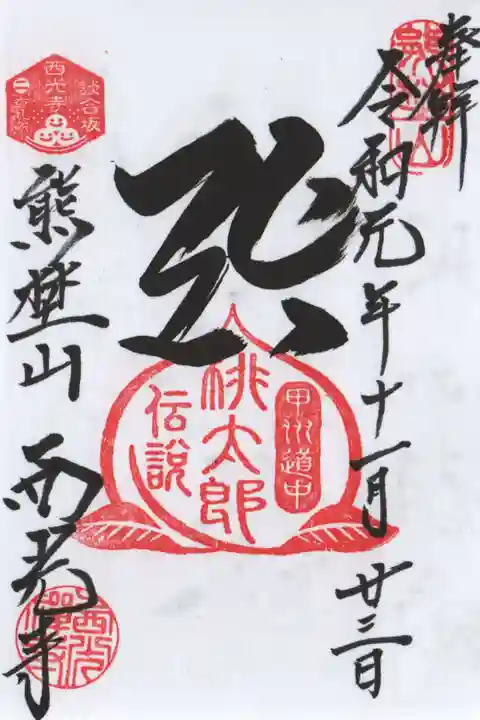 奉拝
令和元年十一月廿三日
甲州道中
桃太郎
伝説
談合坂
西光寺
熊埜山 西光寺